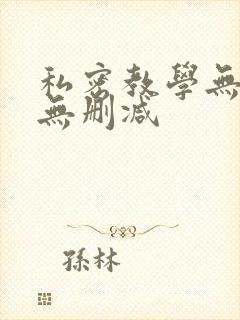 私密教學無
無刪減
孫林